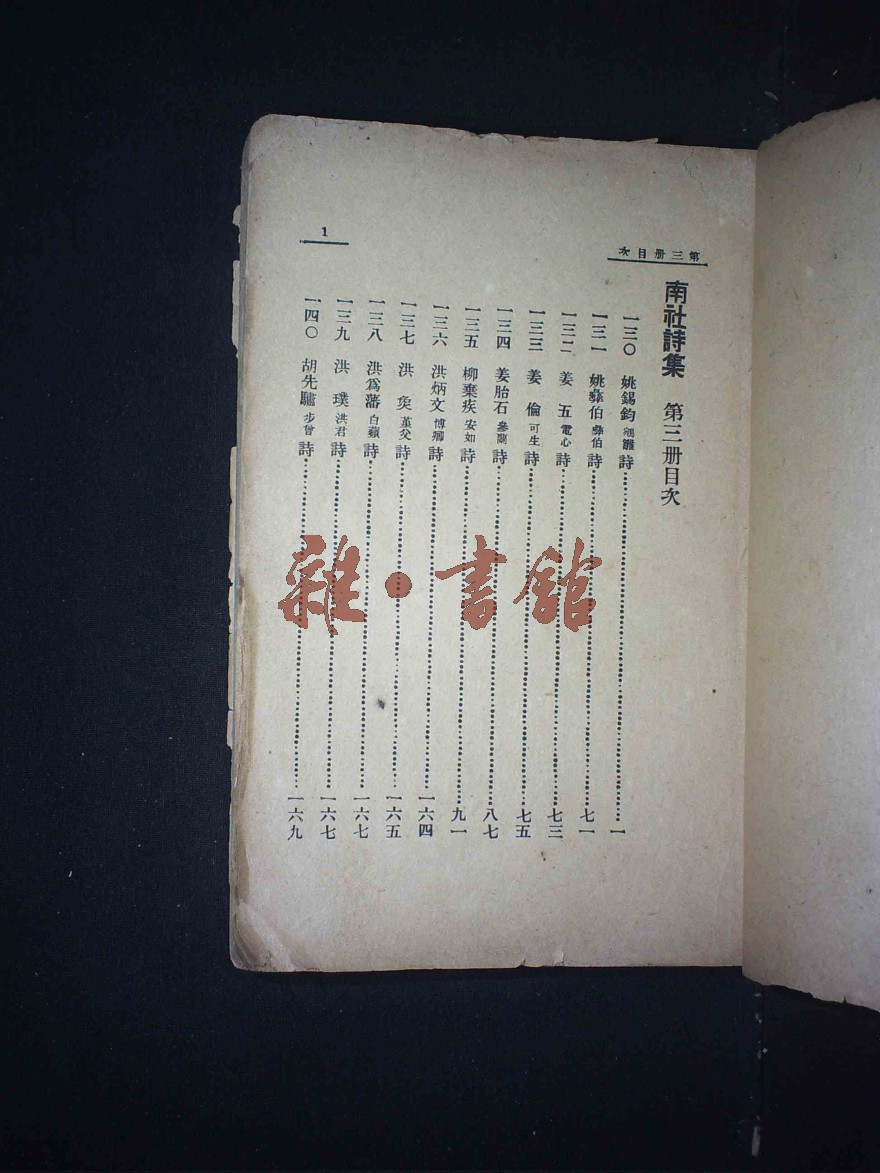 第三册目次
南社詩集　第三册目次
一三〇　姚錫鈞 鵷雛 詩……一
一三一　姚彝伯 彝伯 詩……七一
一三二　姜　五 電心 詩……七三
一三三　姜　倫 可生 詩……七五
一三四　姜胎石 參蘭 詩……八七
一三五　柳棄疾 安如 詩……九一
一三六　洪炳文 博卿 詩……一六四
一三七　洪　炱 堇父 詩……一六五
一三八　洪爲藩 白蘋 詩……一六七
一三九　洪　璞 洪君 詩……一六七
一四〇　胡先驌 步曾 詩……一六九
1
雜·書館